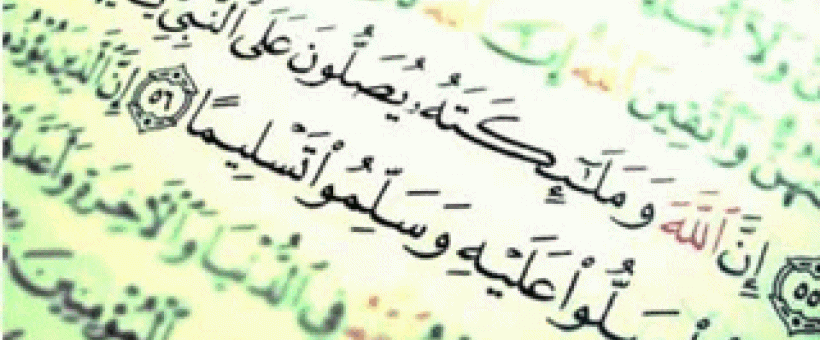 وَلَآ
وَٱتَّقِينَ ٱللَّهَ إِنَّ
٥٥ إِنَّ ٱللَّهَ وَمَلَٰٓئِكَتَهُۥ يُصَلُّونَ عَلَى ٱلنَّبِيِّ
صَلُّوا۟ عَلَيْهِ وَسَلِّمُوا۟ تَسْلِيمًا ٥٦ إِنَّ ٱلَّذِينَ يُؤْذُونَ
فِى ٱلدُّنْيَا وَٱلْءَاخِرَةِ وَأَعَدَّ
ٱلْمُؤْمِنِينَ